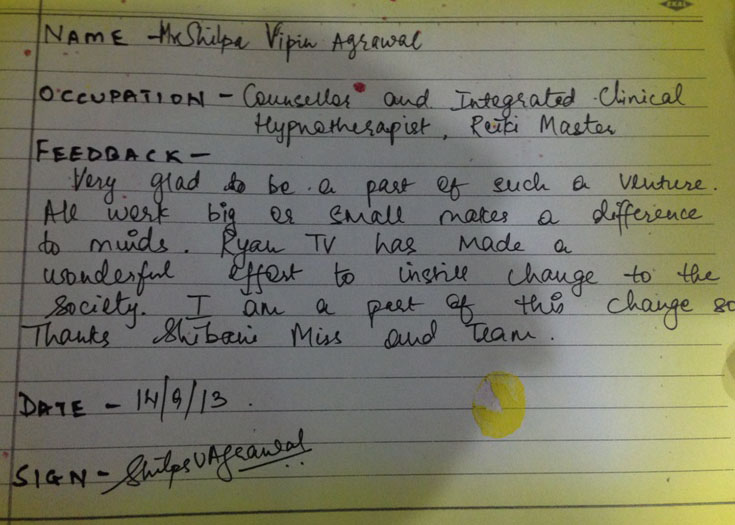 NAME - Mr Shilpa Vipin Agrawal
OCCUPATION - Councellor and Integrated Clinical
Hypnotherapist, Reiki Master
FEEDBACK -
Very glad to be a part of such a venture.
All work big or small makes a difference
to minds. Ryan TV has made a
wonderful effort to instill change to the
society. I am a part of this change so
Thanks Shibani Miss and Team.
DATE - 14/9/13.
SIGN - Shilpa V Agrawal